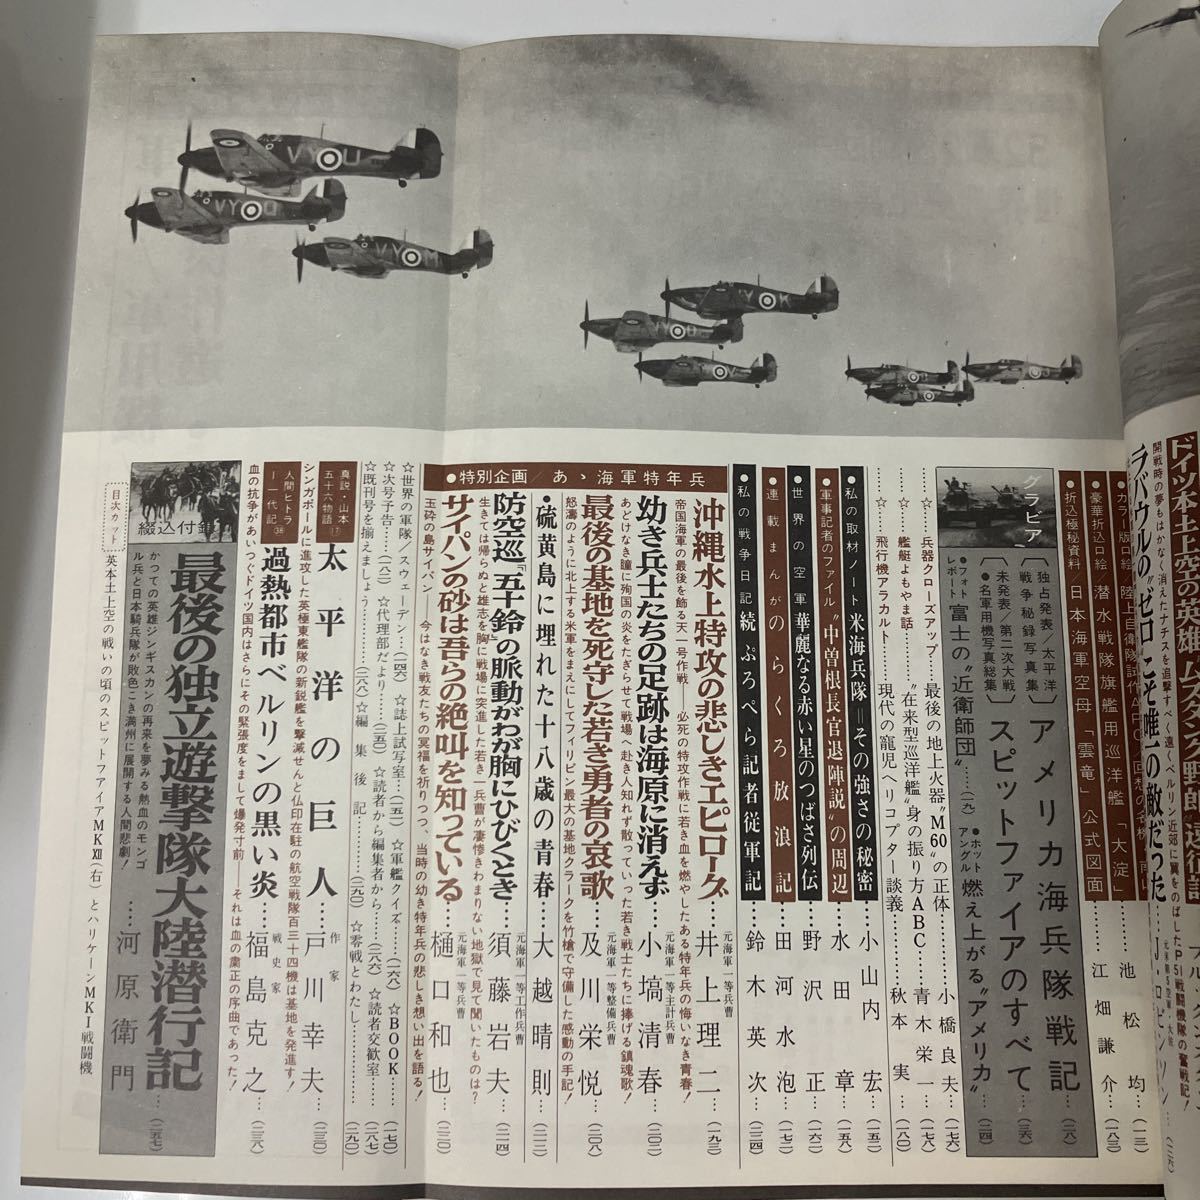 ドイツ本土上空の英雄
開戦時の夢もはかなく消えたナチスを追撃すべく遠くベルリン近郊に翼をのばしたP51戦闘機隊の奮戦記!
ラバウルの〝ゼロ〟こそ唯一の敵だった
J・ロビンソン…(二六)
●カラー版口絵/陸上自衛隊試作APC
●豪華折込口絵/潜水戦隊旗艦用巡洋艦「大淀」……池松均…(一三)
●折込極秘資料/日本海軍空母「雲竜」公式図面……江畑謙介…(一八三)
グラビア
〔独占発表/太平洋戦争秘録写真集〕アメリカ海兵隊戦記……(二八)
〔未発表/第二次大戦●名軍用機写真総集〕スピットファイアのすべて…(三六)
●フォトレポート 富士の〝近衛師団〟…(一九) ●ホットアングル 燃え上がる〝アメリカ〟…(二四)
☆兵器クローズアップ……最後の地上火器〝M60〟の正体……小橋良夫…(一七六)
☆艦艇よもやま話……〝在来型巡洋艦〟身の振り方ABC……青木栄一…(一七八)
☆飛行機アラカルト……現代の寵児ヘリコプター談義……秋本実…(一八〇)
●私の取材ノート 米海兵隊=その強さの秘密……小山内宏…(一五二)
●軍事記者のファイル〝中曽根長官退陣説〟の周辺……水田章…(一五八)
●世界の空軍 華麗なる赤い星のつばさ列伝……野沢正…(一六二)
●連載まんが のらくろ放浪記……田河水泡…(一七二)
●私の戦争日記 続ぷろぺら記者従軍記……鈴木英次…(二二四)
●特別企画/あゝ海軍特年兵
帝国海軍の最後を飾る天一号作戦——必死の特攻作戦に若き血を燃やしたある特年兵の悔いなき青春!
沖縄水上特攻の悲しきエピローグ…元海軍一等兵曹 井上理二…(一九三)
あどけなき瞳に殉国の炎をたぎらせて戦場へ赴き人知れず散っていった若き戦士たちに捧げる鎮魂歌!
幼き兵士たちの足跡は海原に消えず…元海軍一等主計兵曹 小塙清春…(二〇二)
怒濤のように北上する米軍をまえにしてフィリピン最大の基地クラークを竹槍で守備した感動の手記!
最後の基地を死守した若き勇者の哀歌…元海軍一等整備兵曹 及川栄悦…(二〇八)
●硫黄島に埋れた十八歳の青春……大越晴則…(二一二)
生きては帰らぬと雄志を胸に戦場に突進した若き一兵曹が凄惨きわまりない地獄で見て聞いたものは?
防空巡「五十鈴」の脈動わが胸にひびくとき…元海軍一等工作兵曹 須藤岩夫…(二一四)
玉砕の島サイパン——今はなき戦友たちの冥福を祈りつつ、当時の幼き特年兵の悲しき想い出を語る!
サイパンの砂は吾らの絶叫を知っている…元海軍一等兵曹 樋口和也…(二二〇)
☆世界の軍隊/スウェーデン…(一四六) ☆誌上試写室…(一五一) ☆軍艦クイズ…(一六八) ☆BOOK…(一七〇)
☆次号予告…(一八二) ☆代理部だより…(二五〇) ☆読者から編集者から…(二八六) ☆読者交歓室…(二八七)
☆既刊号を揃えましょう……(二八八) ☆編集後記……(二九〇) ☆零戦とわたし……(二九〇)
真説・山本五十六物語⑰ 太平洋の巨人……作家 戸川幸夫…(二三〇)
シンガポールに進攻した英極東艦隊の新鋭艦を撃滅せんと仏印在駐の航空戦隊百三十四機は基地を発進す!
人間ヒトラー一代記㊳ 過熱都市ベルリンの黒い炎…戦史家 福島克之…(二三八)
血の抗争があいつぐドイツ国内はさらにその緊張度をまして爆発寸前——それは血の粛正の序曲であった!
綴込付録
かつての英雄ジンギスカンの再来を夢みる熱血のモンゴル兵と日本騎兵隊が敗色こき満州に展開する人間悲劇!
最後の独立遊撃隊大陸潜行記…
……河原衛門…(二五七)
目次カット 英本土上空の戦いの頃のスピットファイアMKⅫ(右)とハリケーンMKI戦闘機
VY U
VY Q
VY M
Y K
VY
V